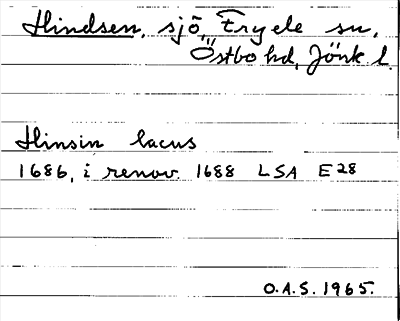 Hindsen, sjö, Fryele sn,
Östbo hd, Jönk l.
Hinsin lacus
1686, i renov. 1688 LSA E28
O.A.S. 1965.